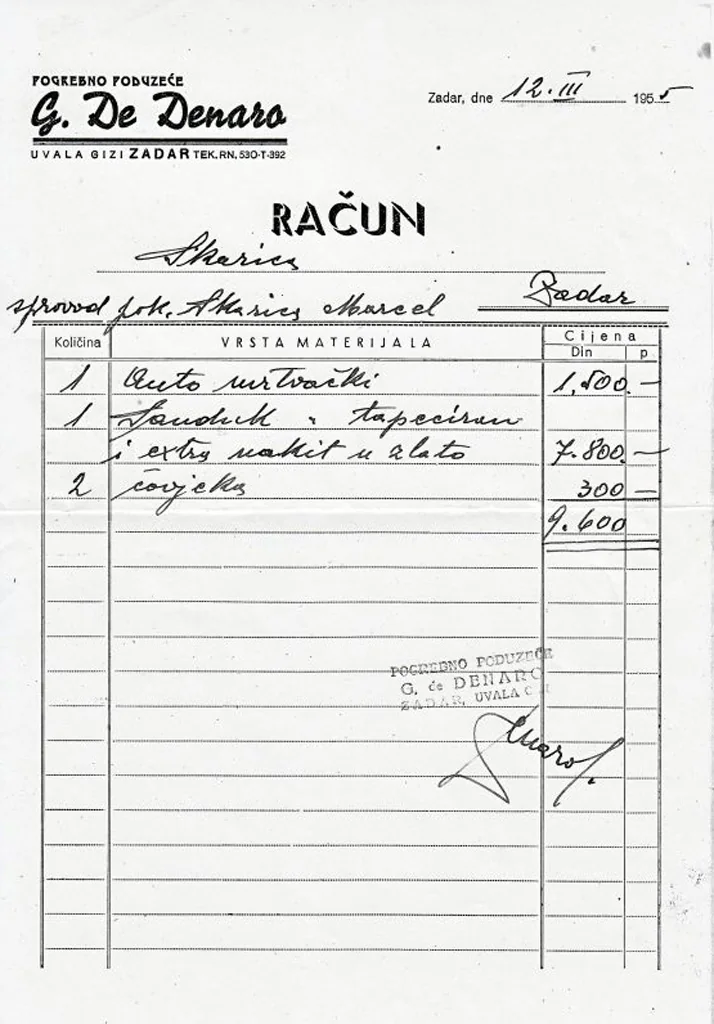 POGREBNO PODUZEĆE
G. De Denaro
UVALA GIZI ZADAR TEK. RN. 530-T-392
Zadar, dne 12. III 1955
RAČUN
Skarica
sprovod pok. Skarica Marcel Zadar
Količina VRSTA MATERIJALA Cijena
Din p
1 Auto mrtvački 1,500.—
1 Sanduk " tapeciran
i extra nakit u zlato 7.800.—
2 čovjeka 300 —
9.600
POGREBNO PODUZEĆE
G. de DENARO
ZADAR, UVALA